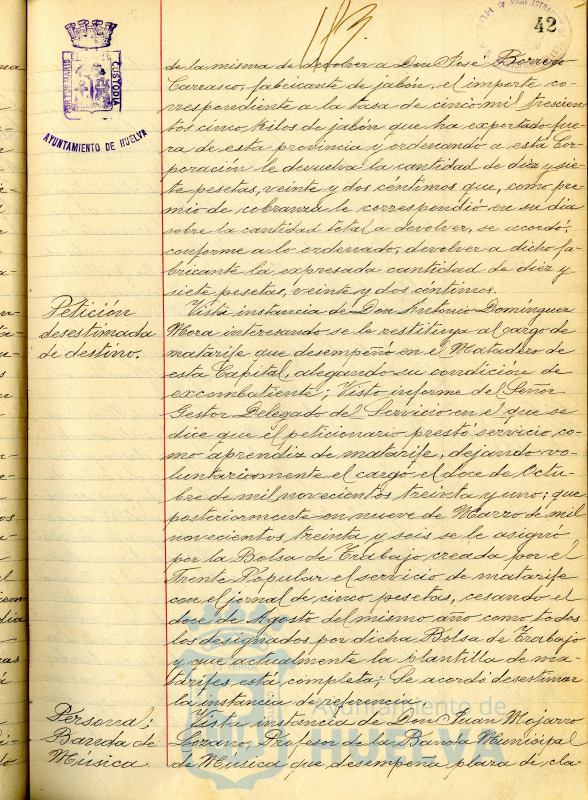 42
PORTUS MARIS
CUSTODIA
AYUNTAMIENTO DE HUELVA
de la misma devolver a Don José Borrero
Carrasco, fabricante de jabón, el importe co-
rrespondiente a la tasa de cinco mil trescien
tos cinco kilos de jabón que ha exportado fue
ra de esta provincia y ordenando a esta Cor-
poración le devuelva la cantidad de diez y sie-
te pesetas, veinte y dos céntimos que, como pre
mio de cobranza le correspondió en su día
sobre la cantidad total a devolver, se acordó,
conforme a lo ordenado, devolver a dicho fa-
bricante la expresada cantidad de diez y
siete pesetas, veinte y dos céntimos.
Petición
desestimada
de destino.
Vista instancia de Don Antonio Domínguez
Mora interesando se le restituya al cargo de
matarife que desempeñó en el Matadero de
esta Capital, alegando su condición de
excombatiente; Visto informe del Señor
Gestor Delegado del Servicio en el que se
dice que el peticionario prestó servicio co-
mo aprendiz de matarife, dejando vo-
luntariamente el cargo el doce de Octu-
bre de mil novecientos treinta y uno; que
posteriormente en nueve de Marzo de mil
novecientos treinta y seis se le asignó
por la Bolsa de Trabajo creada por el
Frente Popular el servicio de matarife
con el jornal de cinco pesetas, cesando el
doce de Agosto del mismo año como todos
los designados por dicha Bolsa de Trabajo
y que actualmente la plantilla de ma-
tarifes está completa; Se acordó desestimar
la instancia de referencia.
Personal;
Banda de
Música.
Vista instancia de Don Juan Mojarro
Lozano, Profesor de la Banda Municipal
de Música que desempeña plaza de cla-
Ayuntamiento de
HUELVA